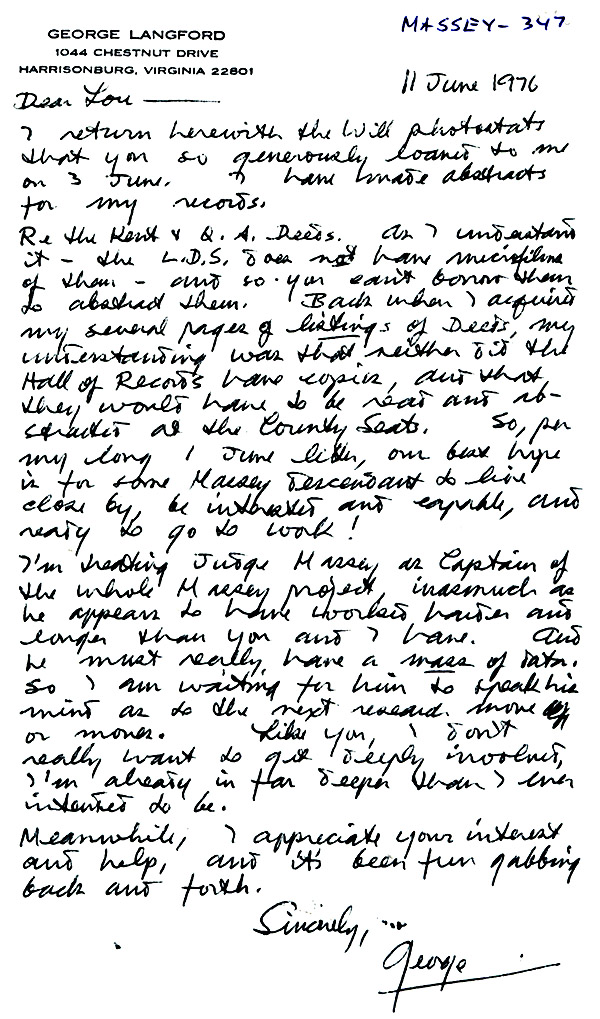 MASSEY - 347
GEORGE LANGFORD
1044 CHESTNUT DRIVE
HARRISONBURG, VIRGINIA 22801
11 June 1976
Dear Lou
I return herewith the Will photostats
that you so generously loaned to me
on 3 June. I have made abstracts
for my records.
Re the Kent & Q. A. Deeds. As I understand
it - the L.D.S. does not have microfilms
of them - and so you can't borrow them
to abstract them. Back when I acquired
my several pages of listings of Deeds, my
understanding was that neither did the
Hall of Records have copies, and that
they would have to be read and ab-
stracted at the County Seats. So, per
my long 1 June letter, our best hope
is for some Massey descendant to live
close by, be interested and capable, and
ready to go to work!
I'm treating Judge Massey as Captain of
the whole Massey project, inasmuch as
he appears to have worked harder and
longer than you and I have. And
he must really have a mass of data.
So I am waiting for him to speak his
mind as to the next research move
or moves. Like you, I don't
really want to get deeply involved,
I'm already in far deeper than I ever
intended to be.
Meanwhile, I appreciate your interest
and help, and it's been fun gabbing
back and forth.
Sincerely, ...
George